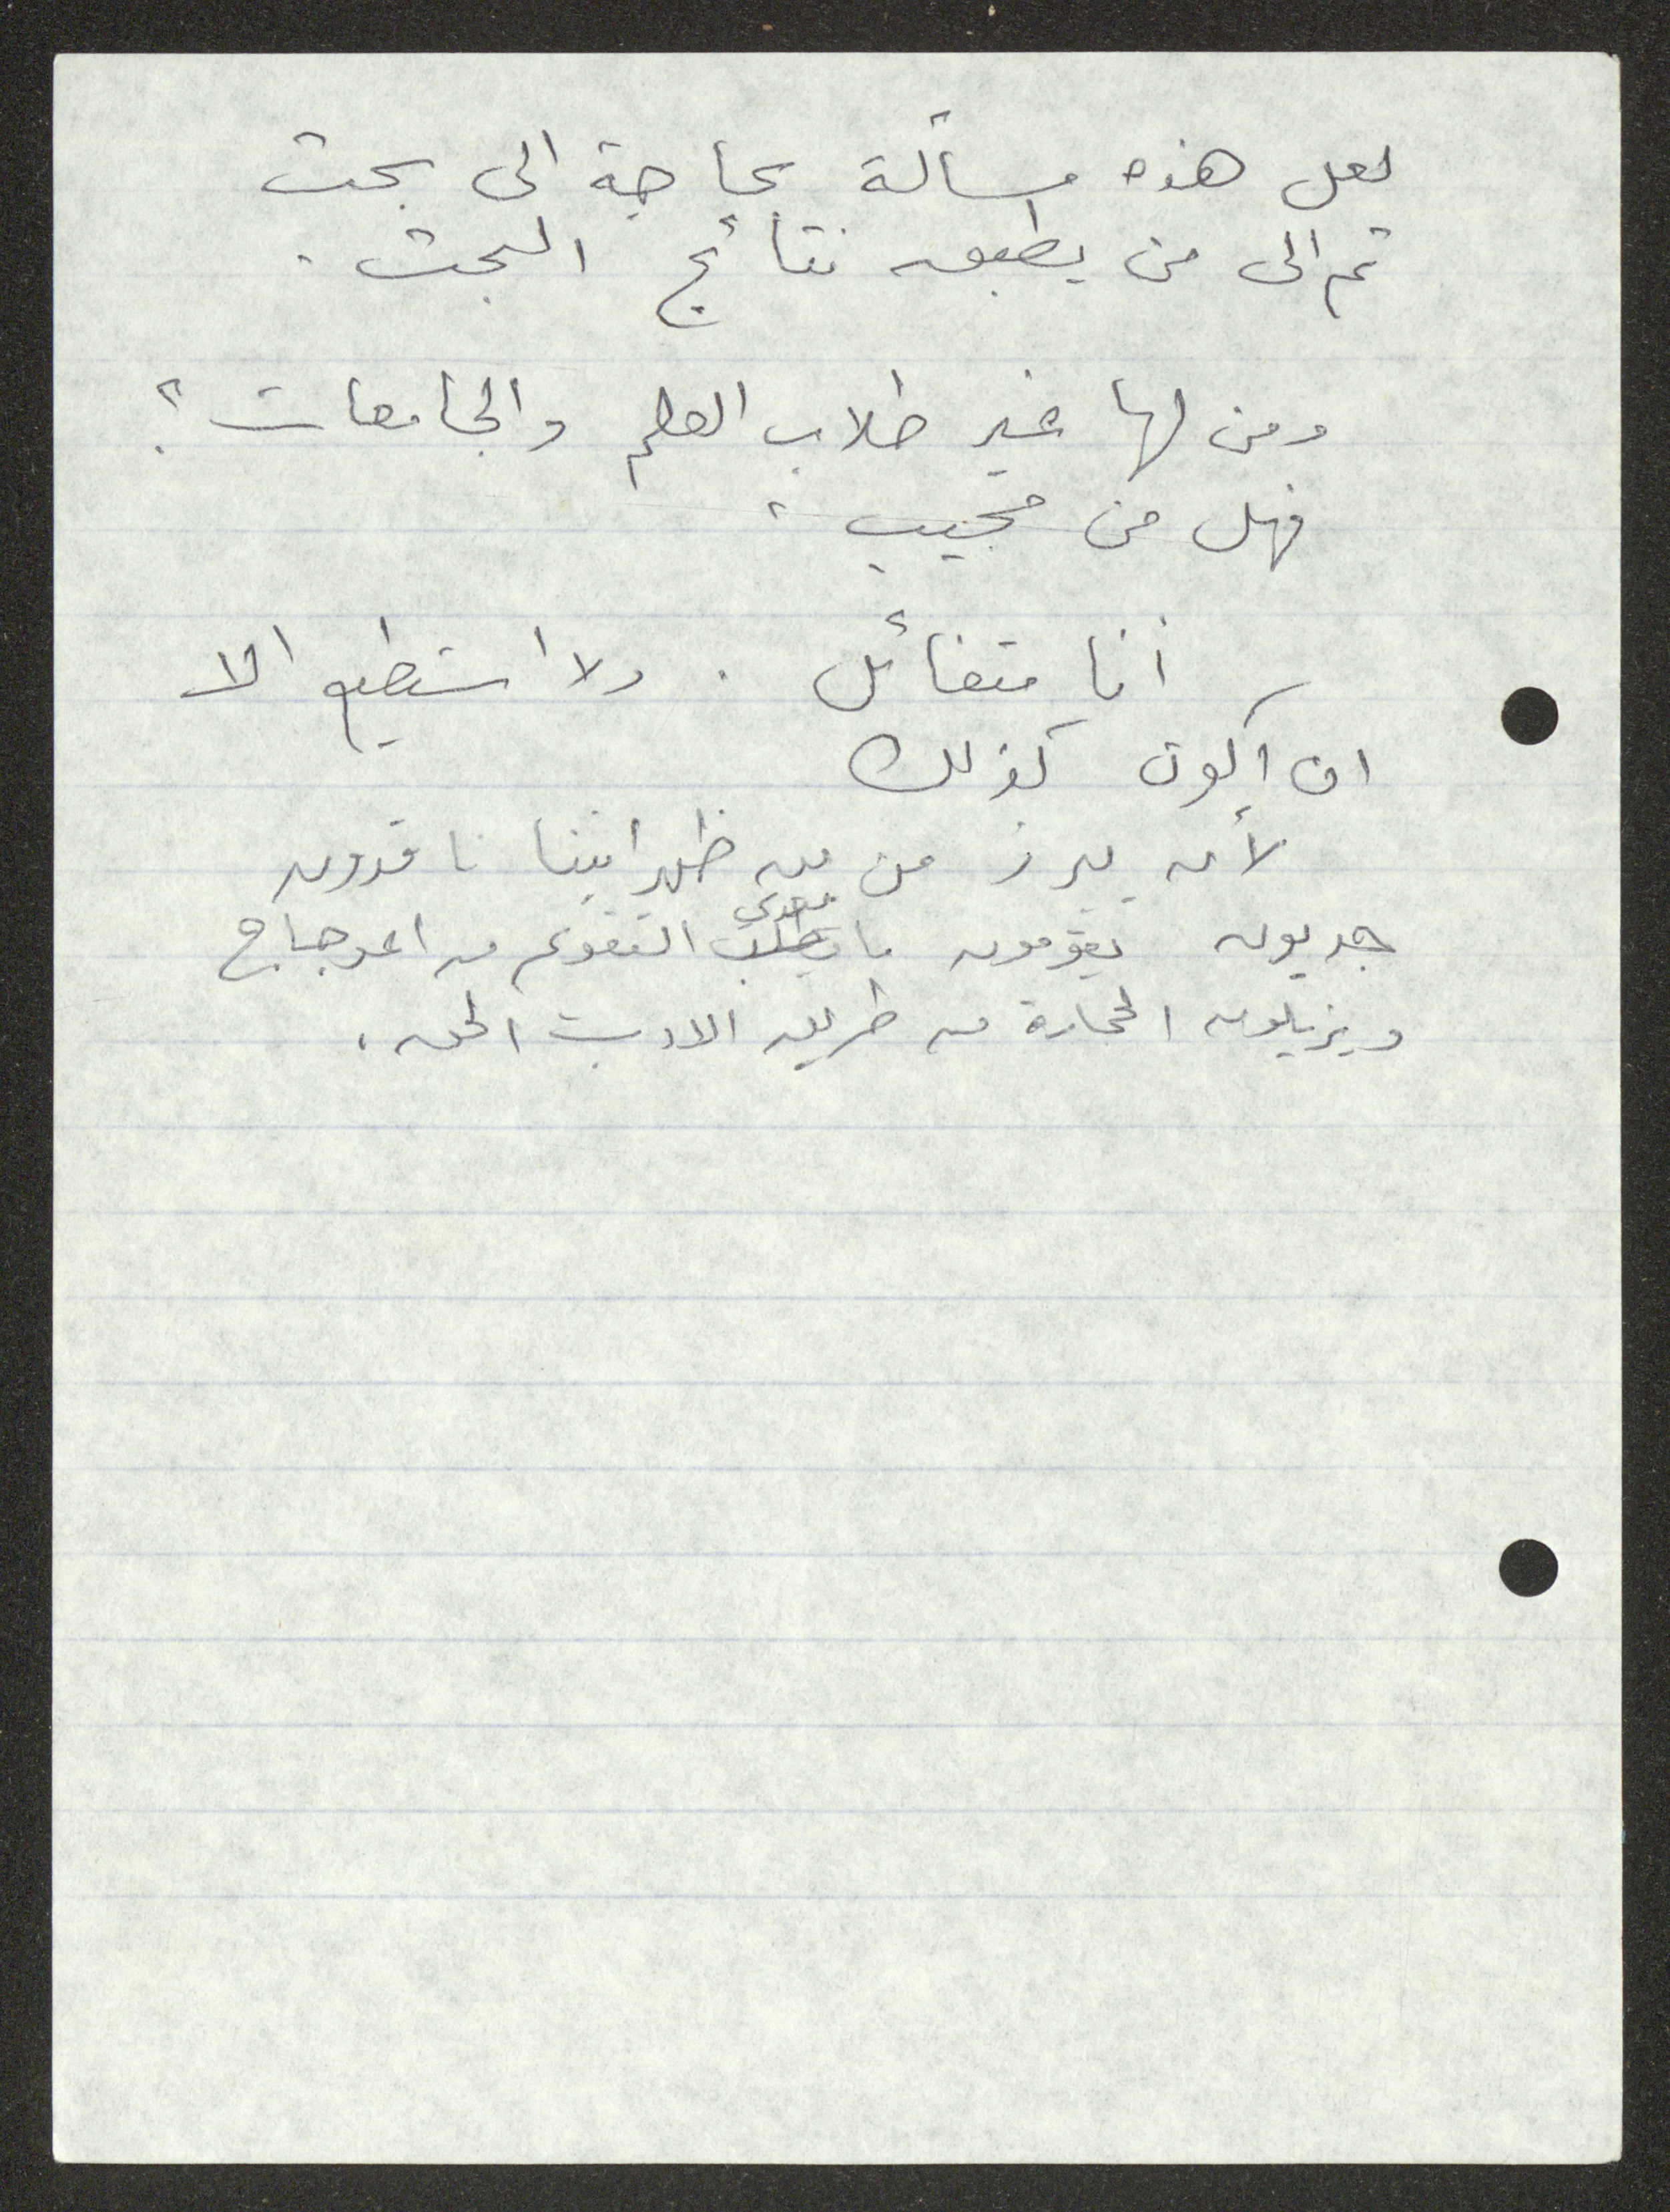 لعل هذه مسألة بحاجة الى بحث
ثم الى من يطبق نتائج البحث .
ومن لها غير طلاب العلم والجامعات ؟
فهل من مجيب ؟
أنا متفائل . ولا استطيع الا
ان أكون كذلك
لأن يبرز من بين ظهرانينا ناقدون
جديون يقومون ما التقويم من اعوجاج
ويزيلون الحجارة من طريق الادب الحق .